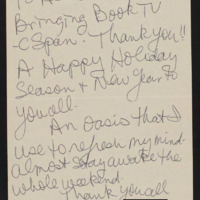 Bringing Book TV
-CSpan. Thank You!!
A Happy Holiday
Season + New Year to
you all.
An Oasis that I
use to refresh my mind-
almost stay awake the
whole weekend.
Thank you all